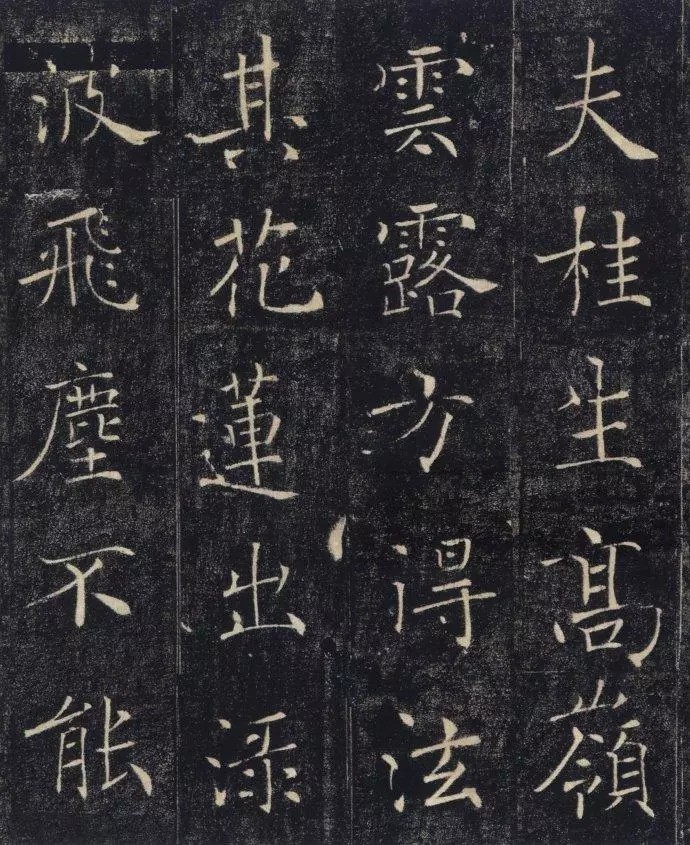 夫桂生髙嶺
雲露方得泫
其花蓮出渌
波飛塵不能